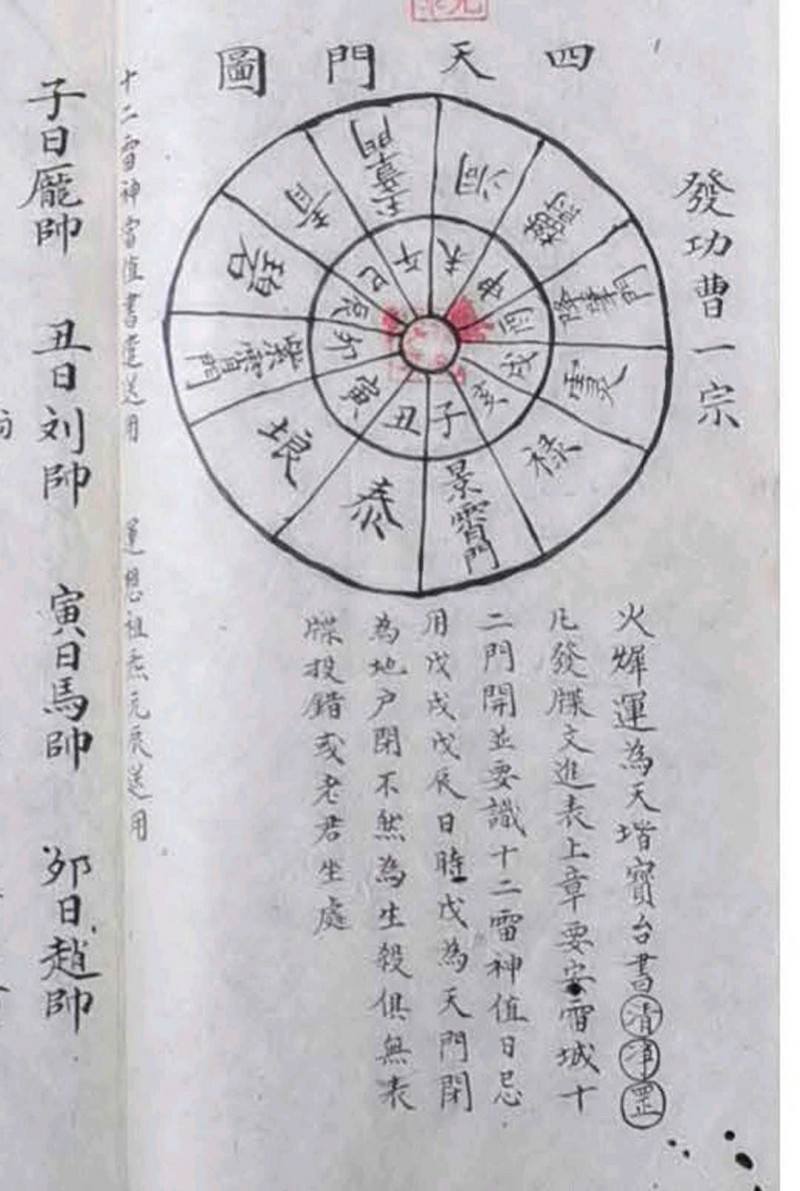 四天門圖
發功曹一宗
子
丑
寅
卯
辰
巳
午
未
申
酉
戌
亥
景霄門
泰
琅
紫霄門
碧
青
門
門
祿
火犀運為天堦寶台書清凈罡
凡發牒文進表上章要安雷城十
二門開並要識十二雷神值日忌
用戊戌戊辰日時戊為天門閉
為地户閉不然為生殺俱無表
牒投錯或老君生處
十二雷神當值書達送用
運想祖炁元辰送用
子日龐帥 丑日刘帥 寅日馬帥 夘日趙帥